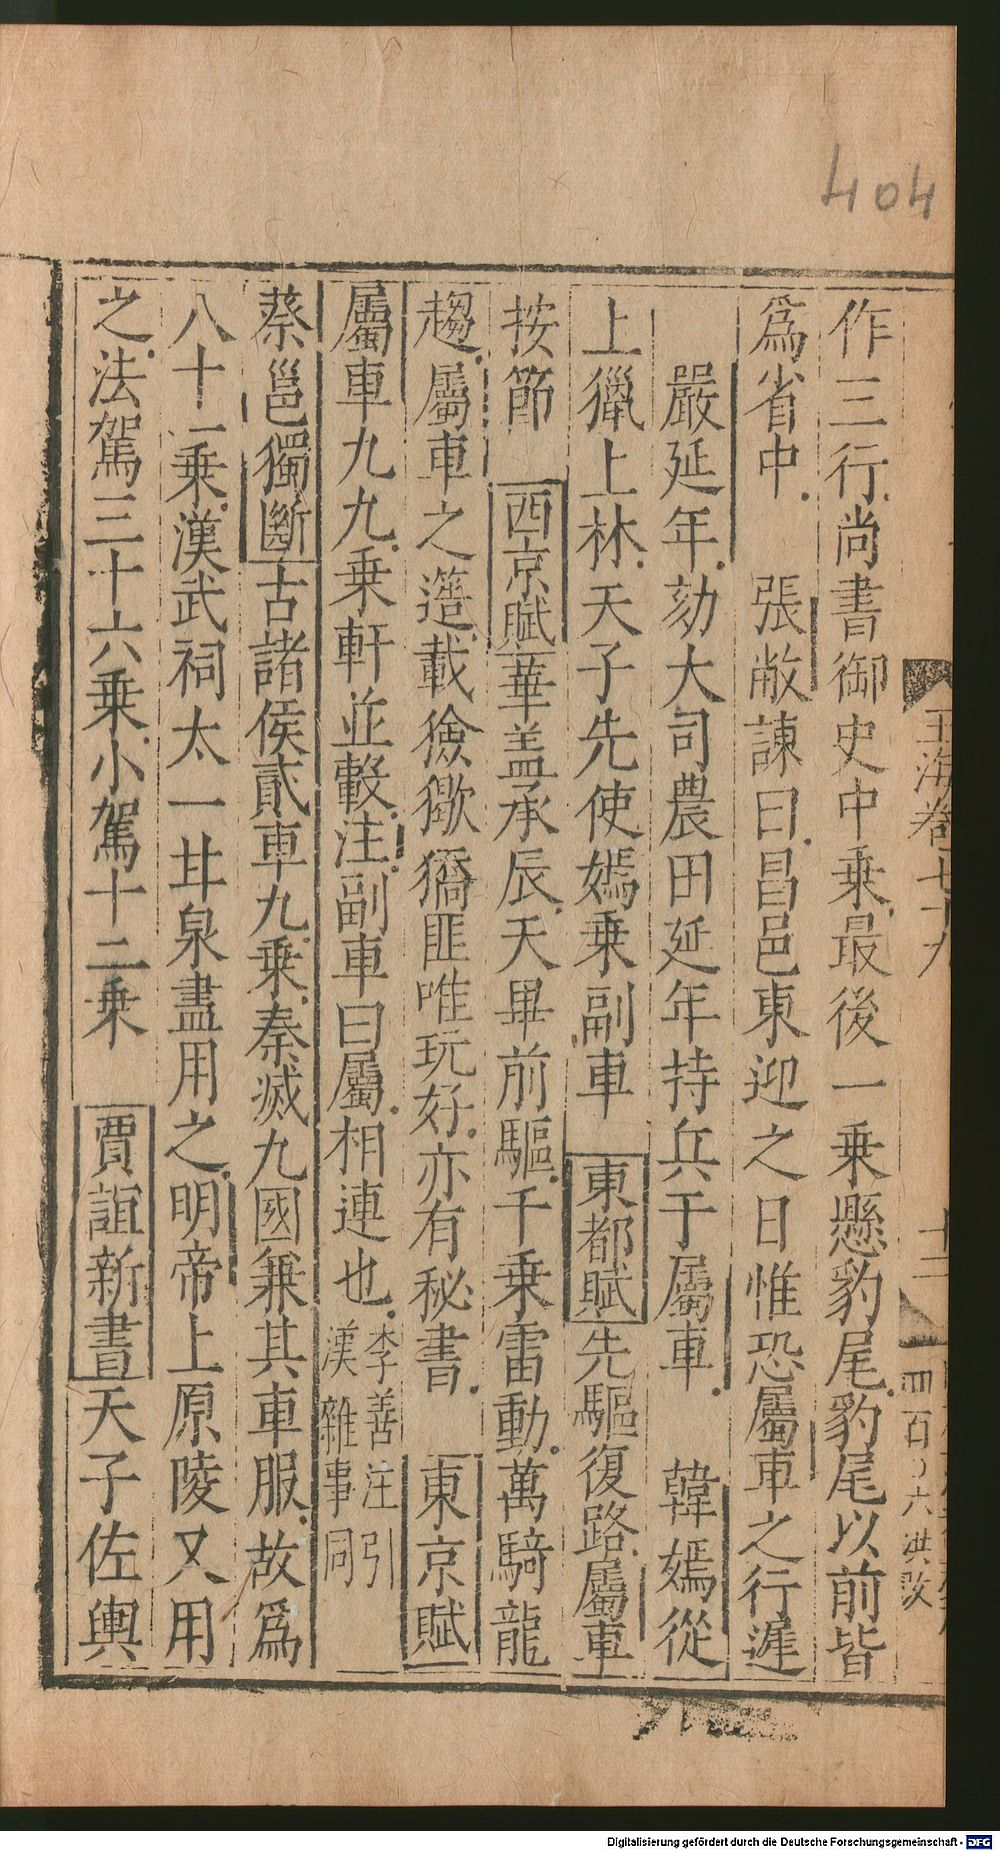 404
玉海卷七十九
十二
四百〇六 洪改
作三行尚書御史中乗最後一乗懸豹尾豹尾以前皆
爲省中 張敞諫曰昌邑東迎之日惟恐屬車之行遲
嚴延年劾大司農田延年持兵于屬車 韓嫣從
上獵上林天子先使嫣乗副車 東都賦先驅復路屬車
按節 西京賦華盖承辰天畢前驅千乗雷動萬騎龍
趨屬車之簉載獫猲獢匪唯玩好亦有秘書 東京賦
屬車九九乗軒並轂注副車曰屬相連也 李善注引漢雜事同
蔡邕獨斷古諸侯貳車九乗秦滅九國兼其車服故爲
八十一乗漢武祠太一甘泉盡用之明帝上原陵又用
之法駕三十六乗小駕十二乗 賈誼新書天子佐輿
Digitalisierung gefördert durch die Deutsche Forschungsgemeinschaft - DFG